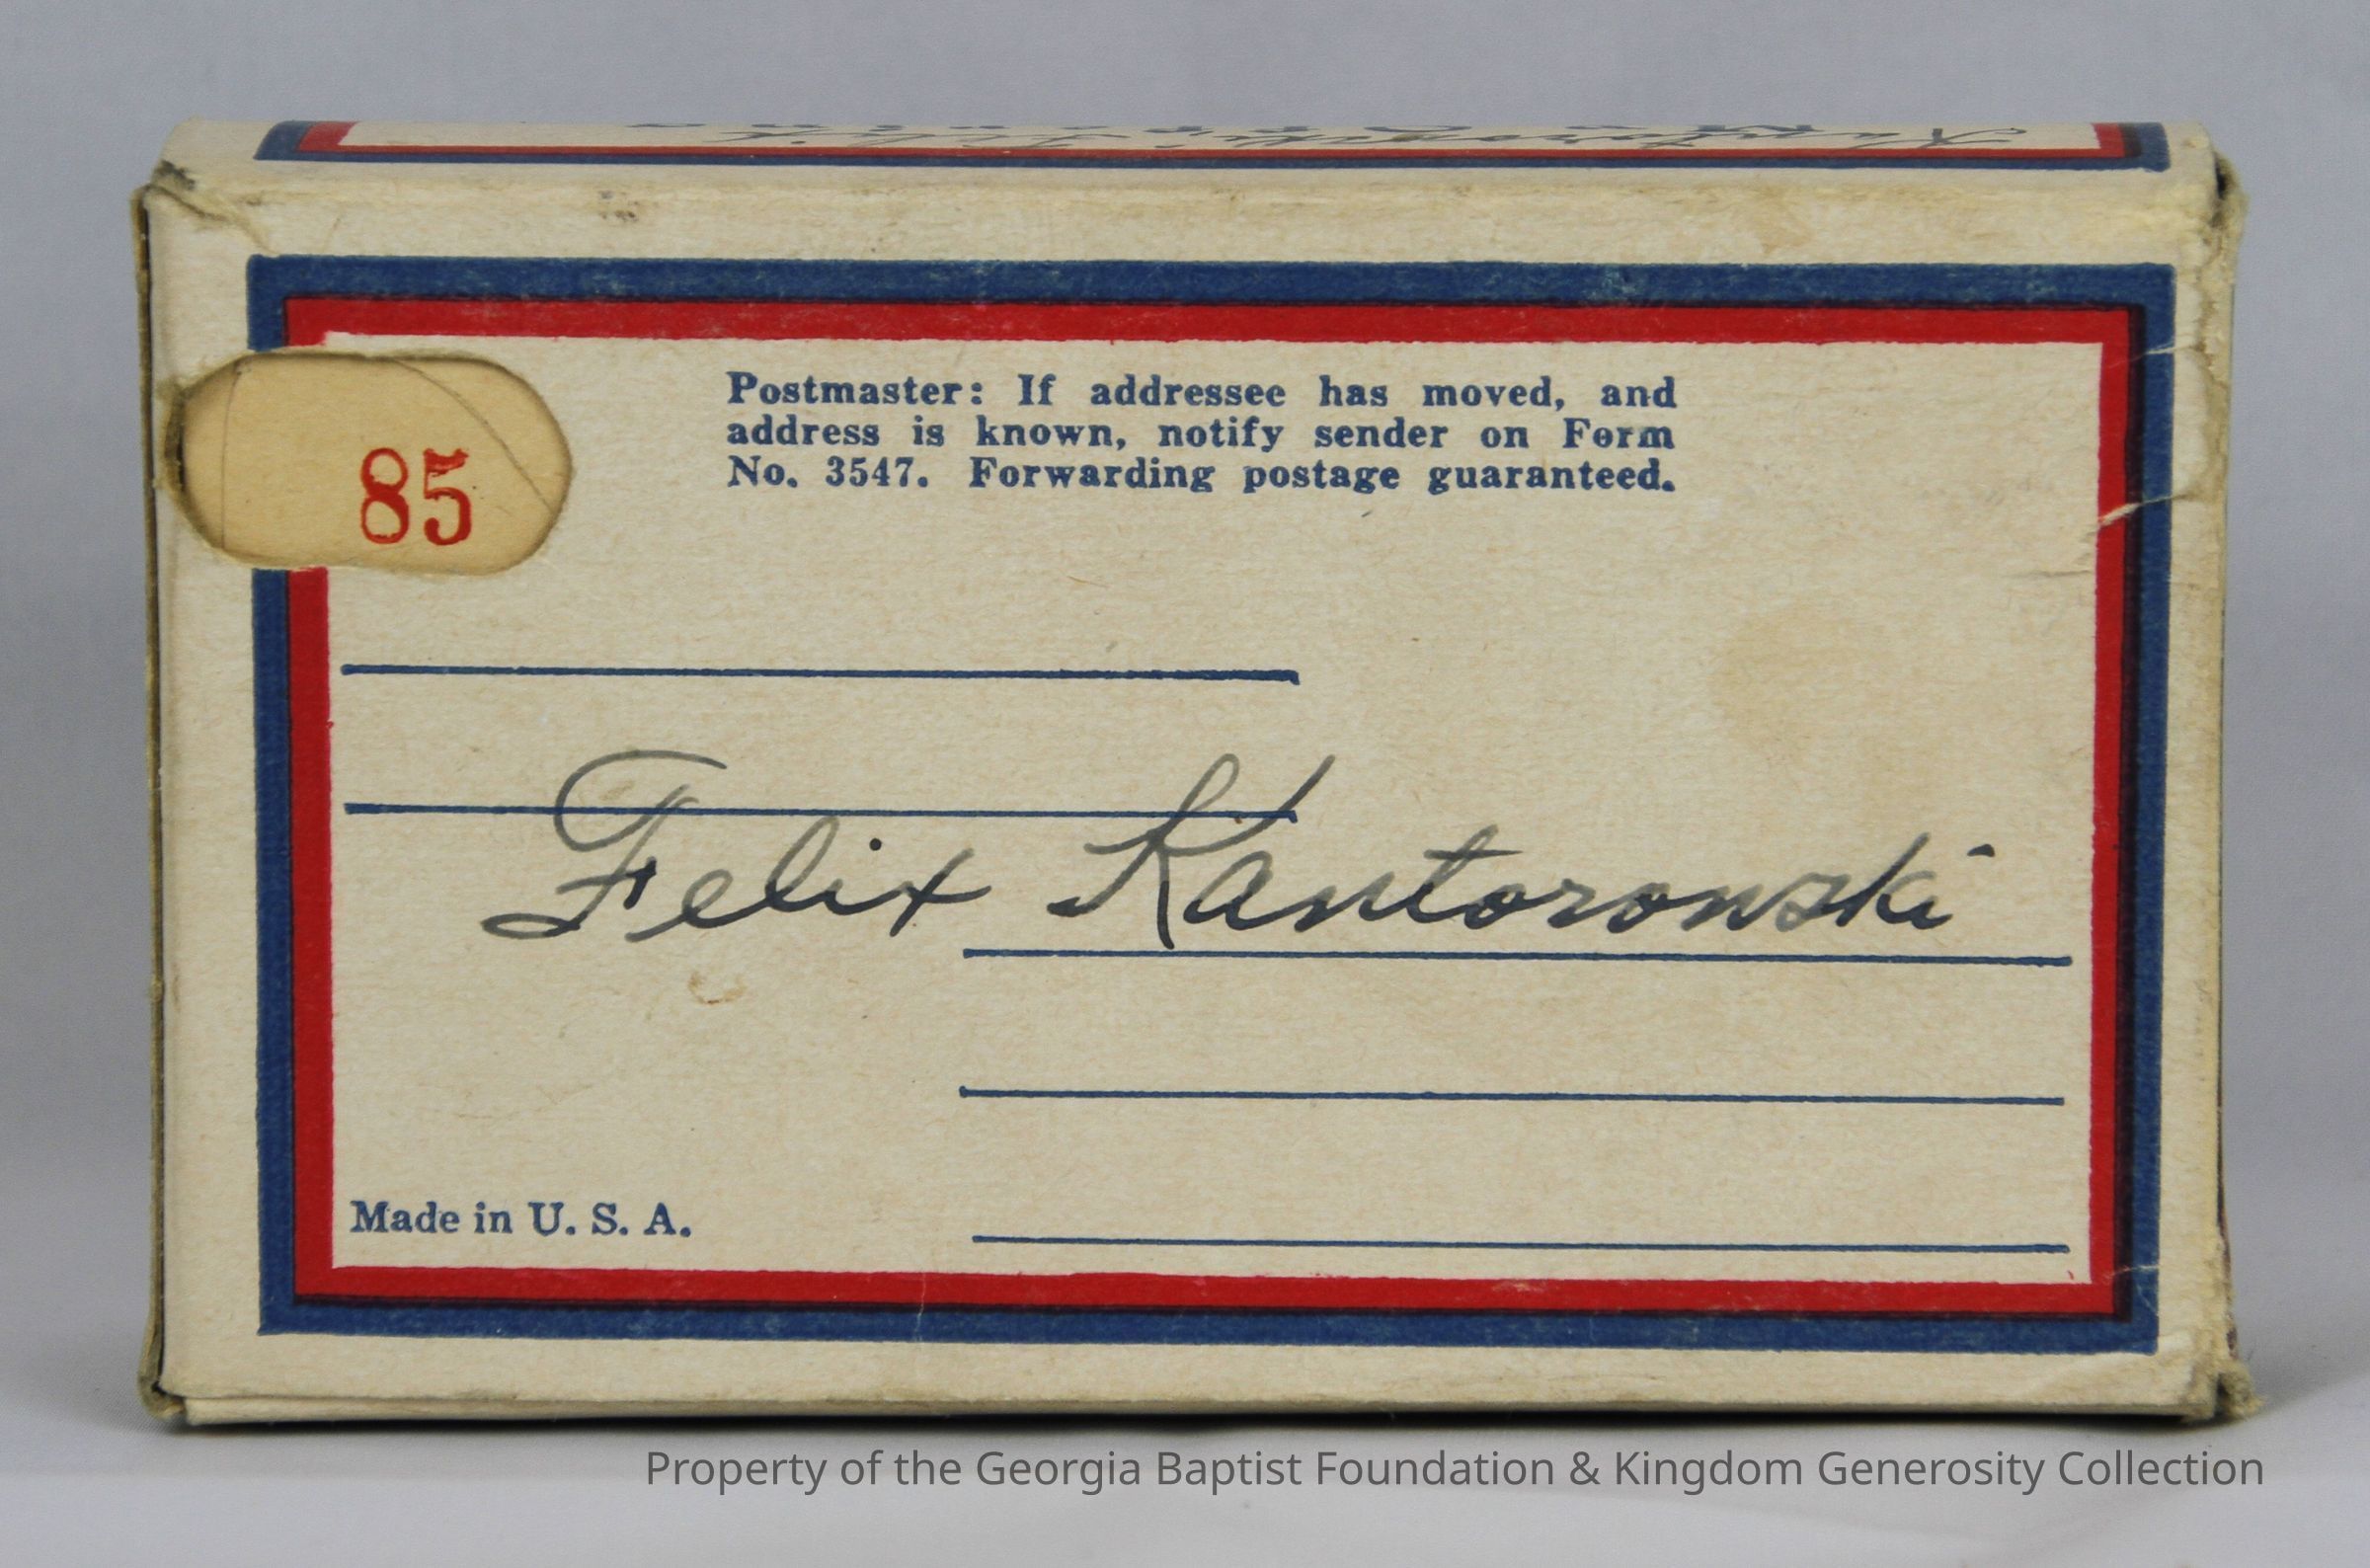 85
Postmaster: If addressee has moved, and
address is known, notify sender on Form
No. 3547. Forwarding postage guaranteed.
Felix Kantorowski
Made in U. S. A.
Property of the Georgia Baptist Foundation & Kingdom Generosity Collection